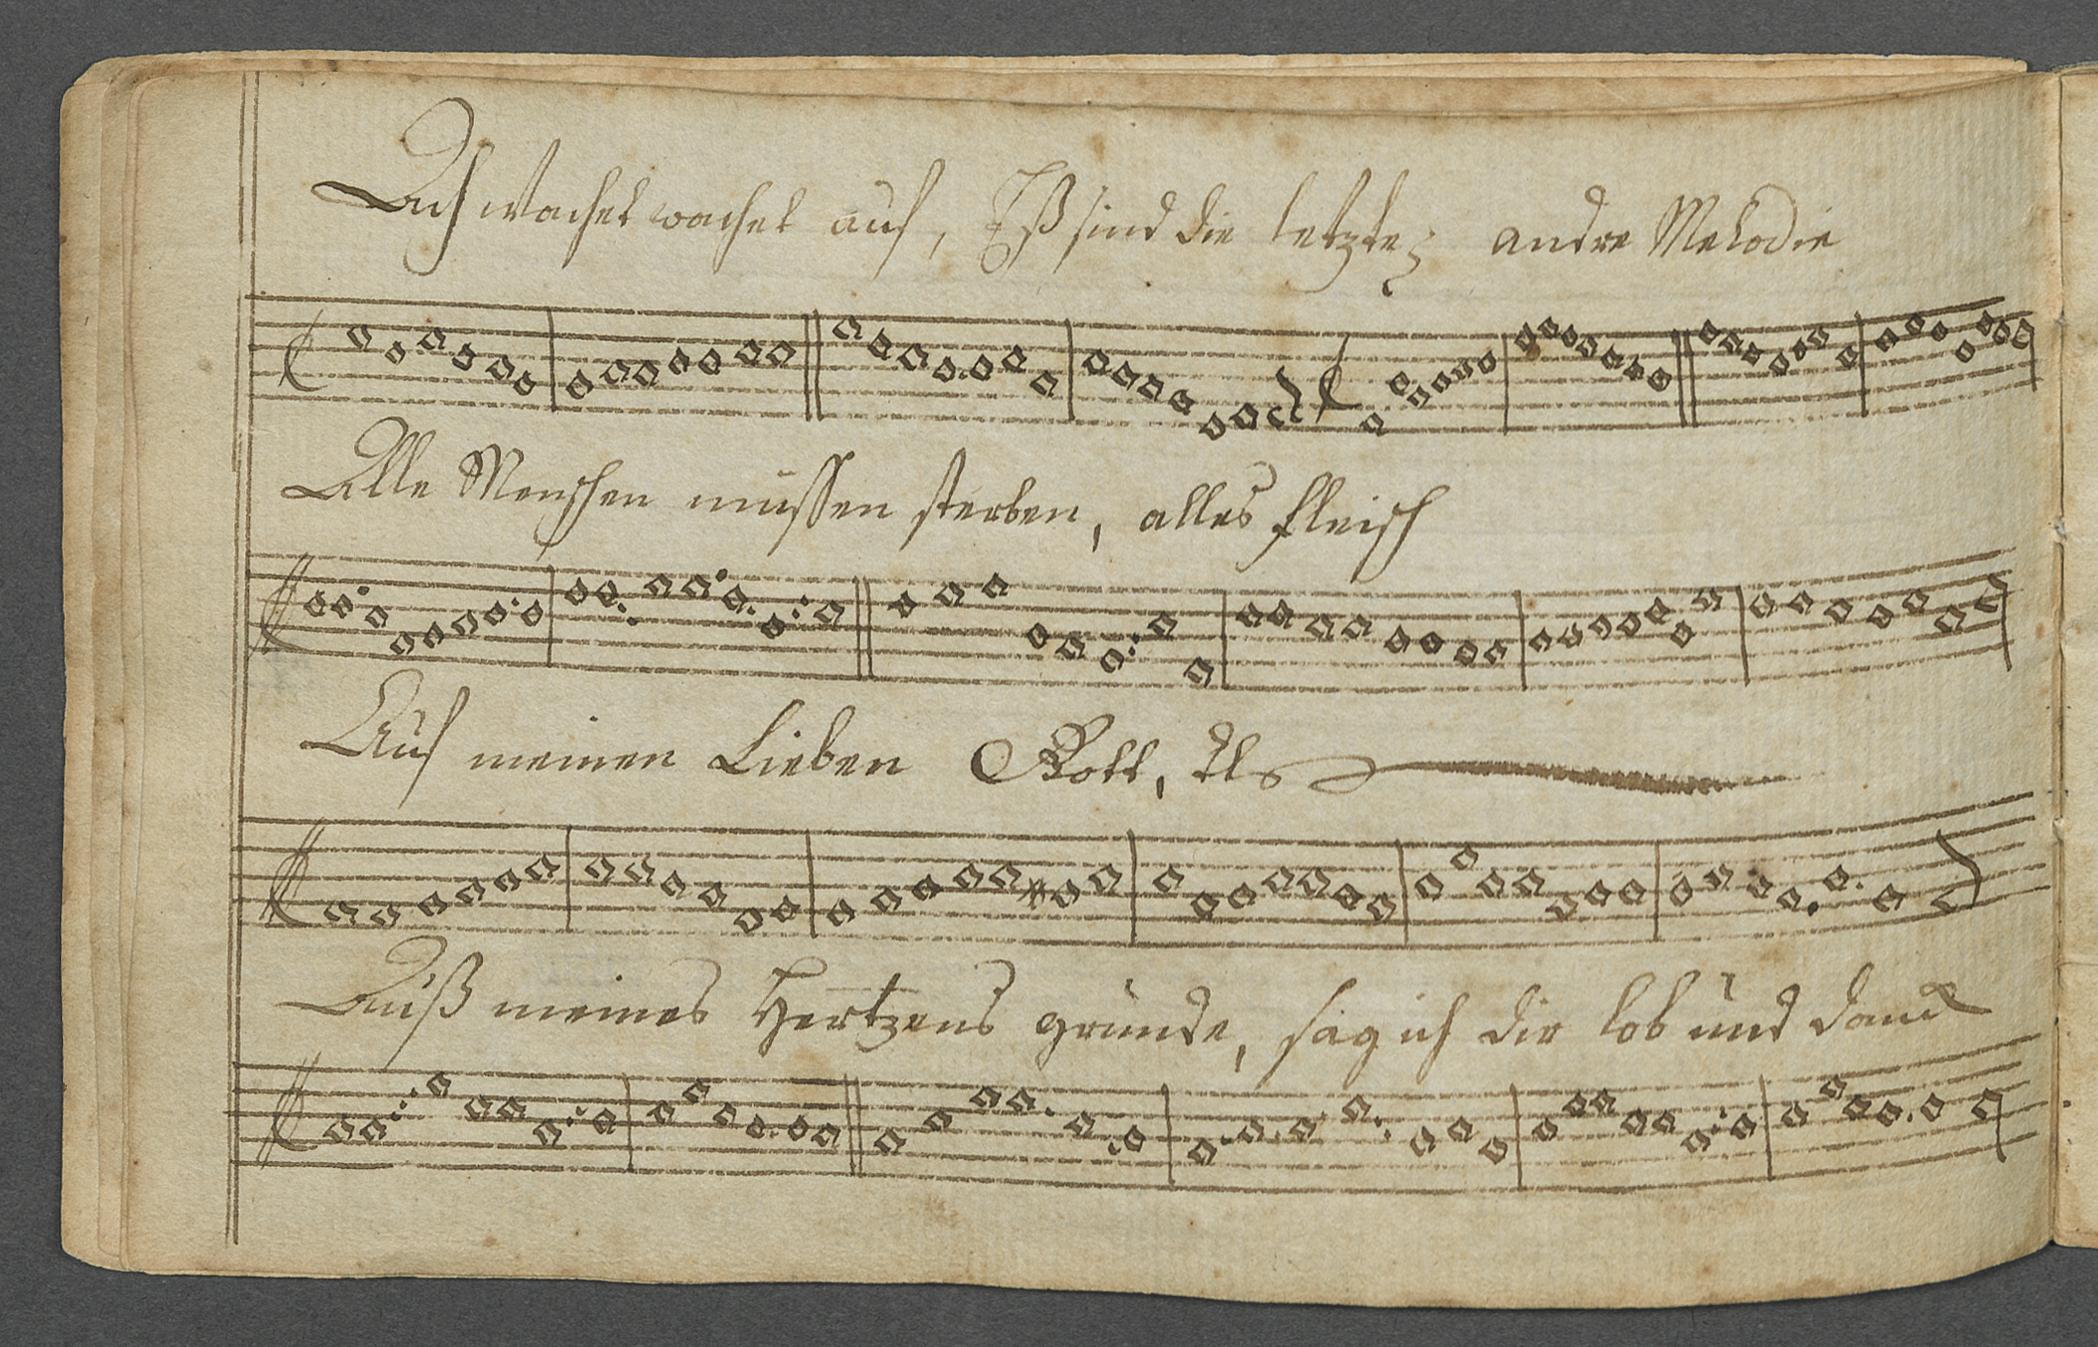 Ach wachet wachet auf, Eß sind die letzte; andre Melodie
Alle Menschen müssen sterben, alles fleisch
Auf meinen Lieben Gott,
Auß meines Hertzens grunde, sag ich dir lob und danck